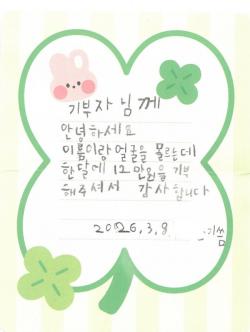 기부자님께
안녕하세요
이름이랑 얼굴을 몰르는데
한달에 12만원을 기부
해주셔서 감사합니다
2026.3.8